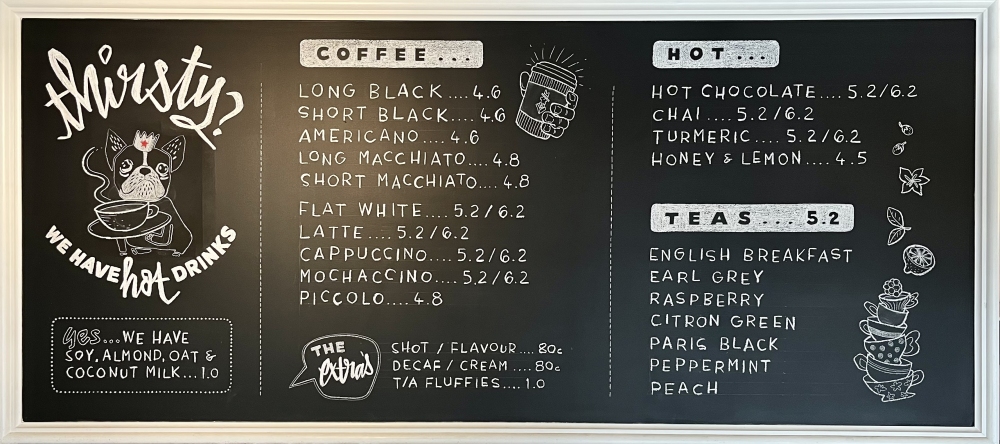 thirsty?
WE HAVE hot DRINKS
yes...WE HAVE
SOY, ALMOND, OAT &
COCONUT MILK...1.0
COFFEE...
LONG BLACK....4.6
SHORT BLACK....4.6
AMERICANO....4.6
LONG MACCHIATO....4.8
SHORT MACCHIATO....4.8
FLAT WHITE....5.2/6.2
LATTE....5.2/6.2
CAPPUCCINO....5.2/6.2
MOCHACCINO....5.2/6.2
PICCOLO....4.8
THE
extras
SHOT / FLAVOUR....80c
DECAF / CREAM....80c
T/A FLUFFIES....1.0
HOT...
HOT CHOCOLATE....5.2/6.2
CHAI....5.2/6.2
TURMERIC....5.2/6.2
HONEY & LEMON....4.5
TEAS...5.2
ENGLISH BREAKFAST
EARL GREY
RASPBERRY
CITRON GREEN
PARIS BLACK
PEPPERMINT
PEACH